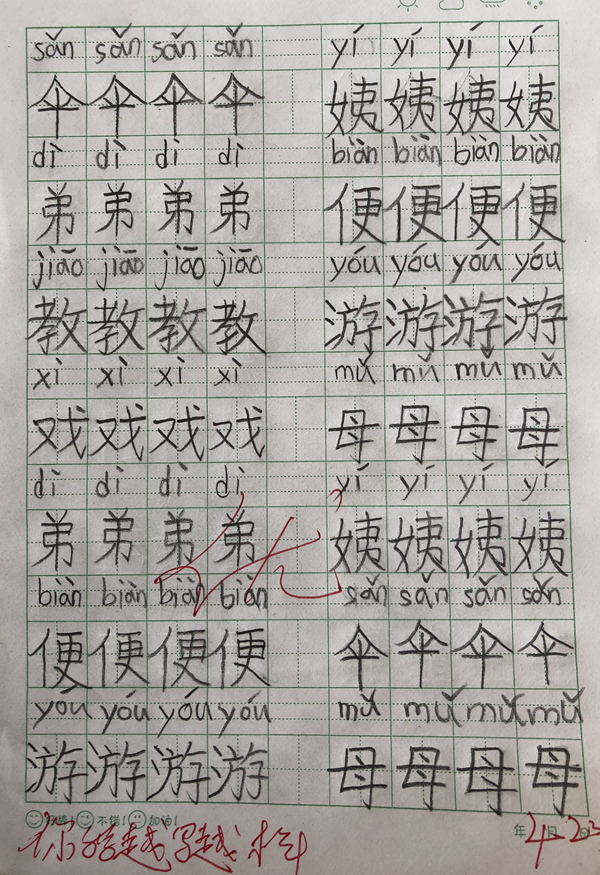 sǎn sǎn sǎn sǎn yí yí yí yí
伞 伞 伞 伞 姨 姨 姨 姨
dì dì dì dì biàn biàn biàn biàn
弟 弟 弟 弟 便 便 便 便
jiāo jiāo jiāo jiāo yóu yóu yóu yóu
教 教 教 教 游 游 游 游
xì xì xì xì mǔ mǔ mǔ mǔ
戏 戏 戏 戏 母 母 母 母
dì dì dì dì yí yí yí yí
弟 弟 弟 弟 姨 姨 姨 姨
biàn biàn biàn biàn sǎn sǎn sǎn sǎn
便 便 便 便 伞 伞 伞 伞
yóu yóu yóu yóu mǔ mǔ mǔ mǔ
游 游 游 游 母 母 母 母
不错! 加油!
年 月 日
你 越写越棒